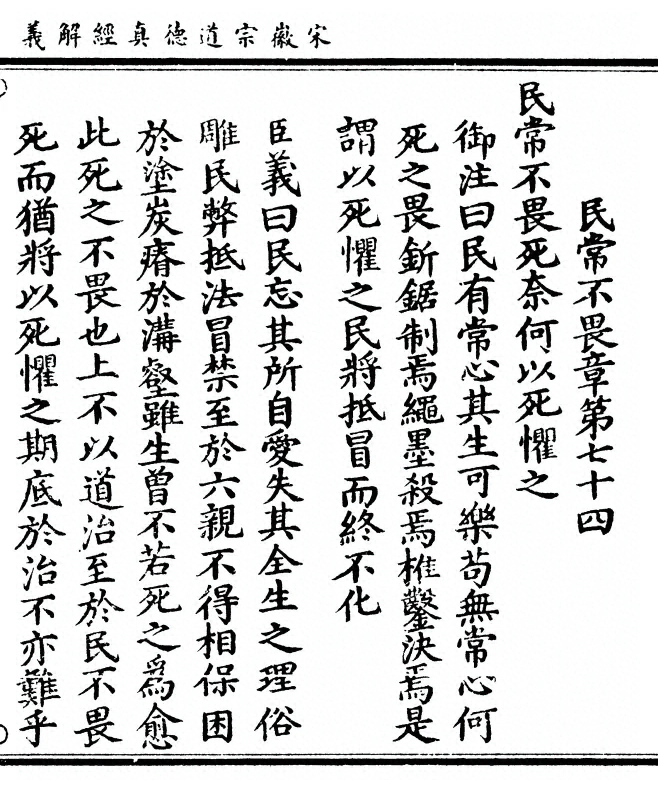 宋徽宗道德真經解義
民常不畏章第七十四
民常不畏死奈何以死懼之
御注曰民有常心其生可樂苟無常心何
死之畏釿鋸制焉繩墨殺焉椎鑿決焉是
謂以死懼之民將抵冒而終不化
臣義曰民忘其所自愛失其全生之理俗
雕民弊抵法冒禁至於六親不得相保困
於塗炭瘠於溝壑雖生曾不若死之爲愈
此死之不畏也上不以道治至於民不畏
死而猶將以死懼之期底於治不亦難乎